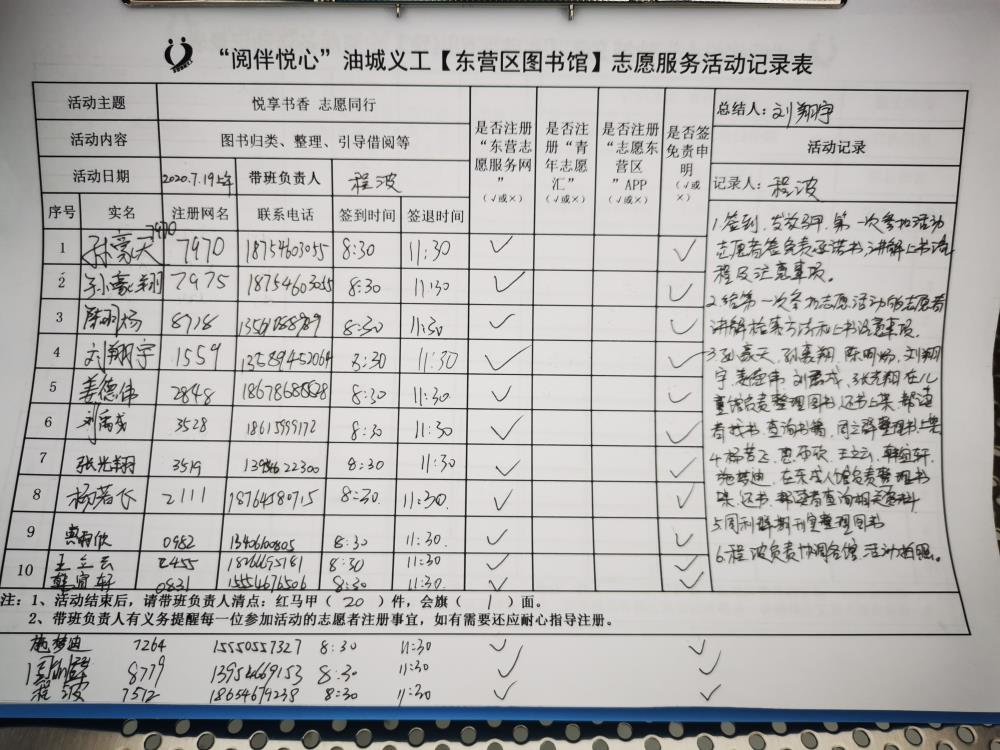 “阅伴悦心”油城义工【东营区图书馆】志愿服务活动记录表
活动主题 悦享书香 志愿同行
活动内容 图书归类、整理、引导借阅等
活动日期 2020.7.19上午 带班负责人 程波
序号 实名 注册网名 联系电话 签到时间 签退时间
是否注册“东营志愿服务网” （√或×）
是否注册“青年志愿汇” （√或×）
是否注册“志愿东营区”APP （√或×）
是否签免责申明 （√或×）
总结人：刘翔宇
活动记录
记录人：程波
7970
1 孙豪天 7970 18754603055 8:30 11:30 √ √
2 孙豪翔 7975 18754603055 8:30 11:30 √ √
3 8:30 11:30 √ √
4 刘翔宇 1559 13589452064 8:30 11:30 √ √
5 姜德伟 2848 8:30 11:30 √ √
6 3528 18615999172 8:30 11:30 √ √
7 张光翔 3519 8:30 11:30 √ √
8 杨若飞 2111 18764580715 8:30 11:30 √ √
9 0952 13406100805 8:30 11:30 √ √
10 王立云 2455 8:30 11:30 √ √
0831 15554676506 8:30 11:30 √ √
1.签到，发放马甲，第一次参加活动
志愿者签免责承诺书，讲解上书流
程及注意事项。
2.给第一次参加志愿活动的志愿者
讲解检索方法和上书注意事项。
3.孙豪天，孙豪翔，刘翔
宇，姜德伟，张光翔在儿
童馆负责整理图书，还书上架，帮读
者找书，查询书籍，
4.杨若飞，王立云，
施梦迪，在东成人馆负责整理书
架，还书，帮读者查询相关资料
5.期刊室整理图书
6.程波负责协调各馆，活动拍照。
注：1、活动结束后，请带班负责人清点：红马甲（ 20 ）件，会旗（ 1 ）面。
2、带班负责人有义务提醒每一位参加活动的志愿者注册事宜，如有需要还应耐心指导注册。
施梦迪 7264 15550557327 8:30 11:30 √ √
8779 13954669153 8:30 11:30 √ √
程波 7512 18654679238 8:30 11:30 √ √